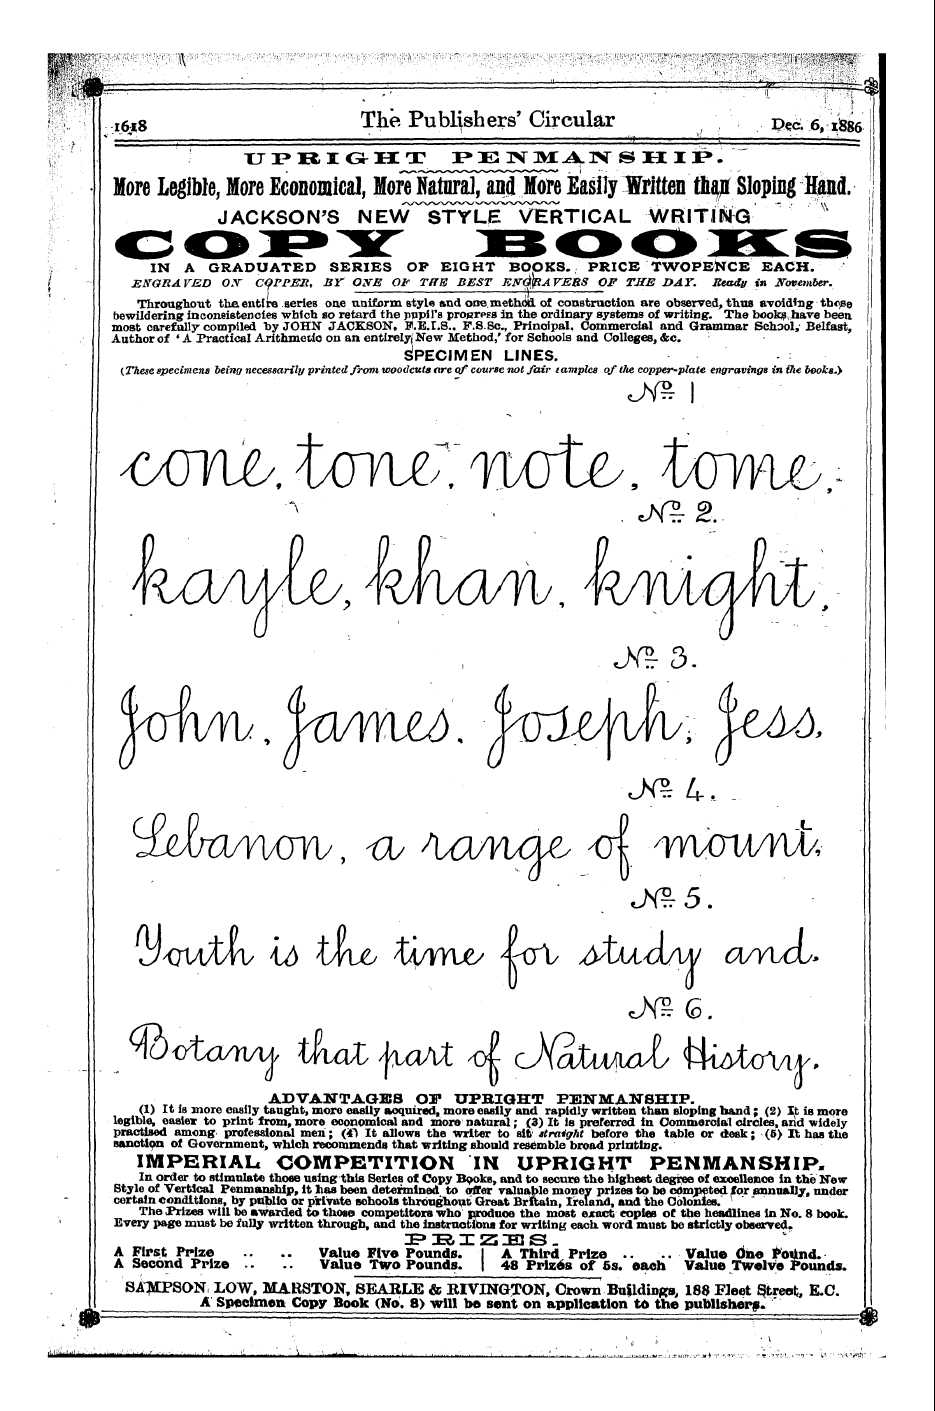 1618 The Publishers' Circular Dec. 6, 1886
UPRIGHT PENMANSHIP.
More Legible, More Economical, More Natural, and More Easily Written than Sloping Hand.
JACKSON'S NEW STYLE VERTICAL WRITING
COPY BOOKS
IN A GRADUATED SERIES OF EIGHT BOOKS. PRICE TWOPENCE EACH.
ENGRAVED ON COPPER, BY ONE OF THE BEST ENGRAVERS OF THE DAY. Ready in November.
Throughout the entire series one uniform style and one method of construction are observed, thus avoiding those
bewildering inconsistencies which so retard the pupil's progress in the ordinary systems of writing. The books have been
most carefully compiled by JOHN JACKSON, F.E.I.S., F.S.Sc., Principal, Commercial and Grammar School, Belfast,
Author of 'A Practical Arithmetic on an entirely New Method,' for Schools and Colleges, &c.
SPECIMEN LINES.
(These specimens being necessarily printed from woodcuts are of course not fair samples of the copper-plate engravings in the books.)
No. 1
cone, tone, note, tome,
No. 2.
kayle, khan, knight,
No. 3.
John, James, Joseph, Jess,
No. 4.
Lebanon, a range of mount,
No. 5.
Youth is the time for study and.
No. 6.
Botany that part of Natural History.
ADVANTAGES OF UPRIGHT PENMANSHIP.
(1) It is more easily taught, more easily acquired, more easily and rapidly written than sloping hand; (2) It is more
legible, easier to print from, more economical and more natural; (3) It is preferred in Commercial circles, and widely
practised among professional men; (4) It allows the writer to sit straight before the table or desk; (5) It has the
sanction of Government, which recommends that writing should resemble broad printing.
IMPERIAL COMPETITION IN UPRIGHT PENMANSHIP.
In order to stimulate those using this Series of Copy Books, and to secure the highest degree of excellence in the New
Style of Vertical Penmanship, it has been determined to offer valuable money prizes to be competed for annually, under
certain conditions, by public or private schools throughout Great Britain, Ireland, and the Colonies.
The Prizes will be awarded to those competitors who produce the most exact copies of the headlines in No. 8 book.
Every page must be fully written through, and the instructions for writing each word must be strictly observed.
PRIZES.
A First Prize .. .. Value Five Pounds. | A Third Prize .. .. Value One Pound.
A Second Prize .. .. Value Two Pounds. | 48 Prizes of 5s. each Value Twelve Pounds.
SAMPSON LOW, MARSTON, SEARLE & RIVINGTON, Crown Buildings, 188 Fleet Street, E.C.
A Specimen Copy Book (No. 8) will be sent on application to the publishers.